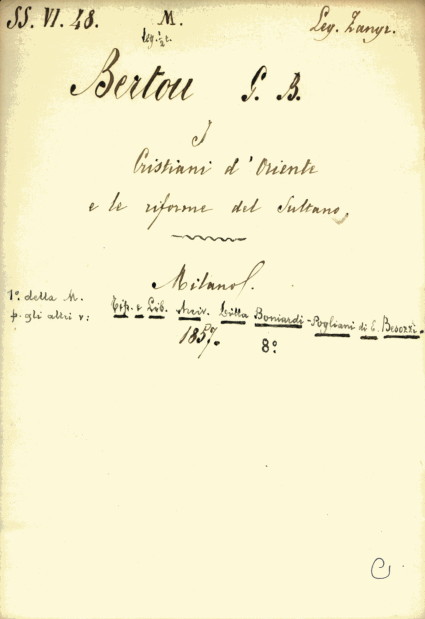 SS. VI. 48. M. Leg. Zangr.
leg. ½ c.
Bertou G. B.
I
Cristiani d'Oriente
e le riforme del Sultano.
Milano.
1º. della M.
p. gli altri v: Tip. e Lib. Arciv. Ditta Boniardi-Pogliani di E. Besozzi.
1857. 8º
C